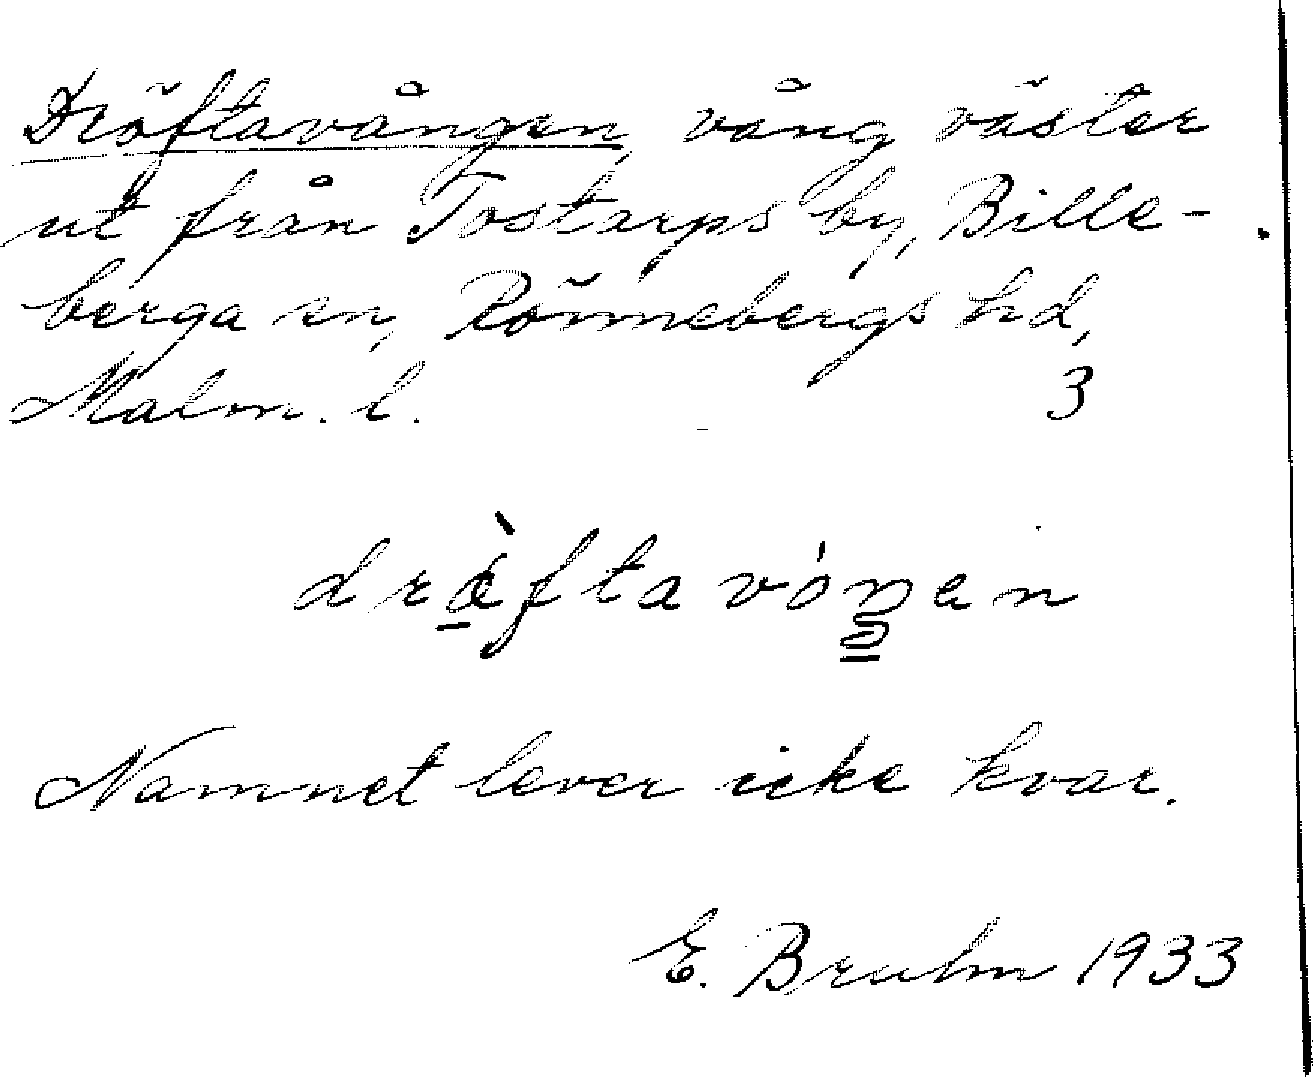 Dröftavången, vång väster
ut från Tostarps by, Bille-
berga sn, Rönnebergs hd,
Malm. l. 3
dræ̀ftavóŋen
Namnet lever icke kvar.
E. Bruhn 1933